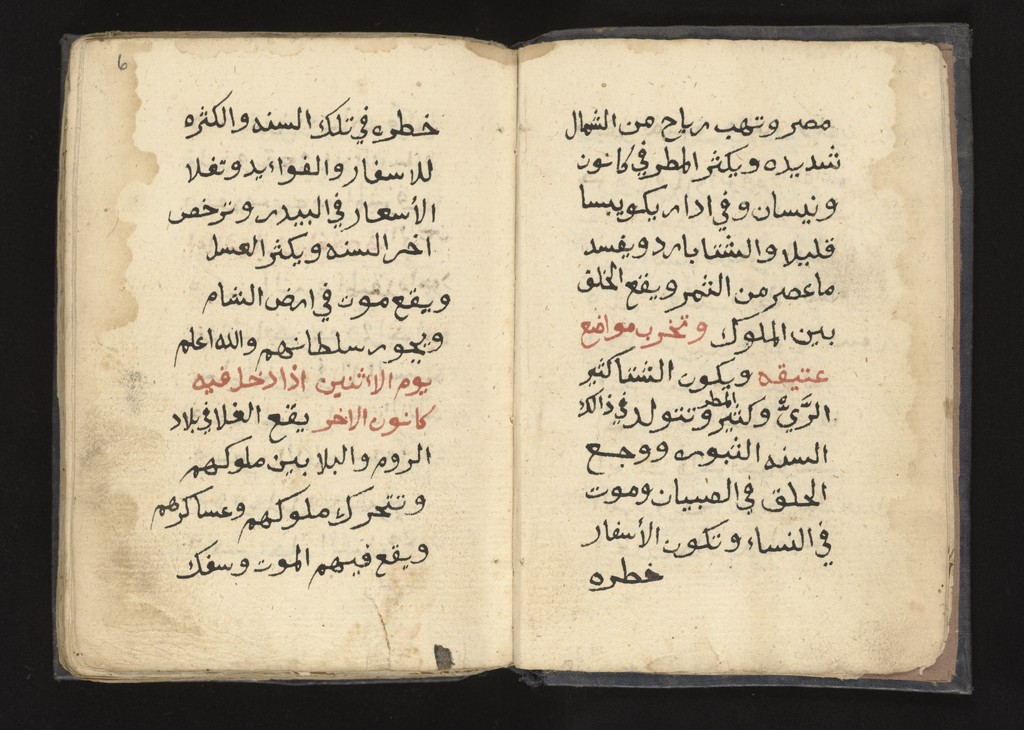 مصر وتهب رياح من الشمال
شديده ويكثر المطر في كانون
ونيسان وفي ادار يكو يبسا
قليلا والشتا بارد ويفسد
ما عصر من الثمر ويقع الخلف
بين الملوك وتخرب مواضع
عتيقه ويكون الشتا كثير
الريّ وكثير المطر وتتولد في ذالك
السنه الثبوره ووجع
الحلق في الصبيان وموت
في النساء وتكون الأسفار
خطره
6
خطره في تلك السنه والكثره
للاسفار والفوايد وتغلا
الأسعار في البيدر وترخص
اخر السنه ويكثر العسل
ويقع موت في ارض الشام
ويجور سلطانهم والله اعلم
يوم الاثنين اذا دخل فيه
كانون الاخر يقع الغلا في بلاد
الروم والبلا بين ملوكهم
وتتحرك ملوكهم وعساكرهم
ويقع فيهم الموت وسفك